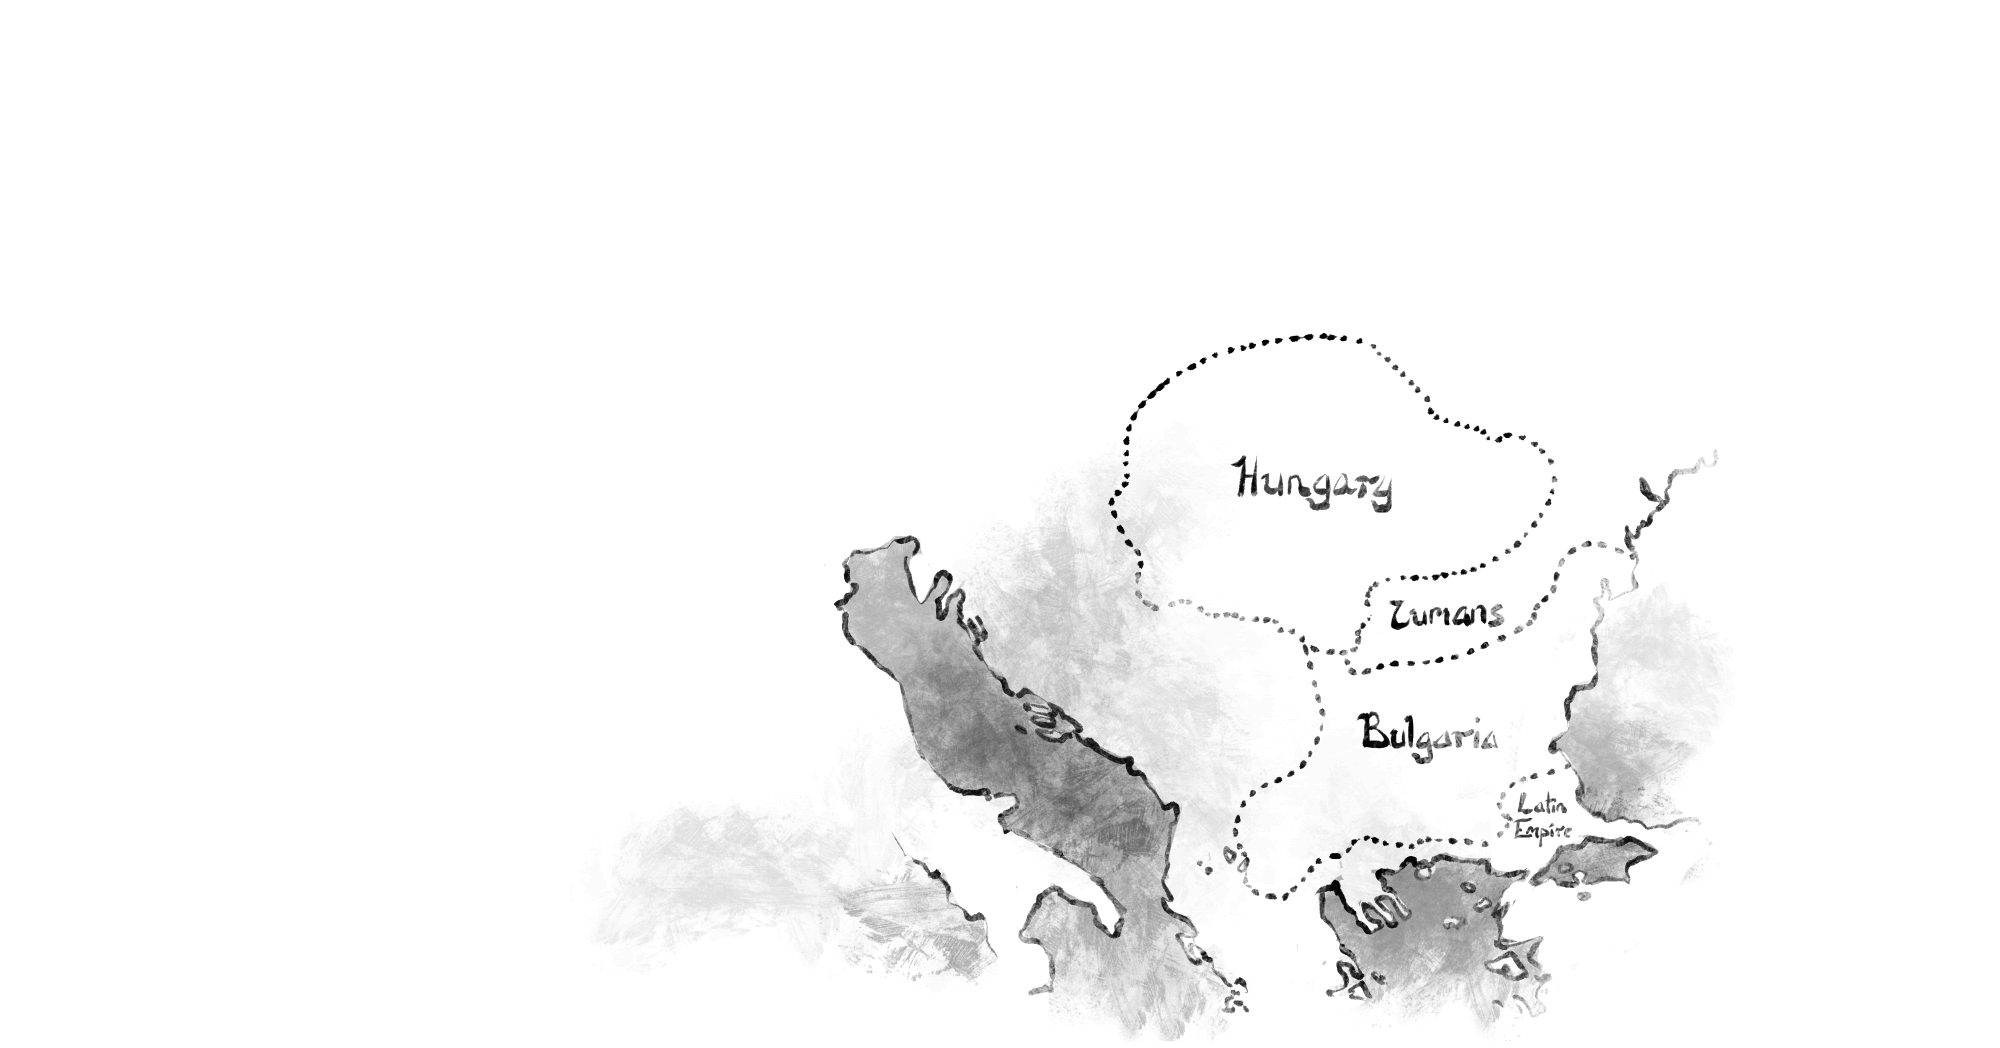 Hungary
Cumans
Bulgaria
Latin
Empire